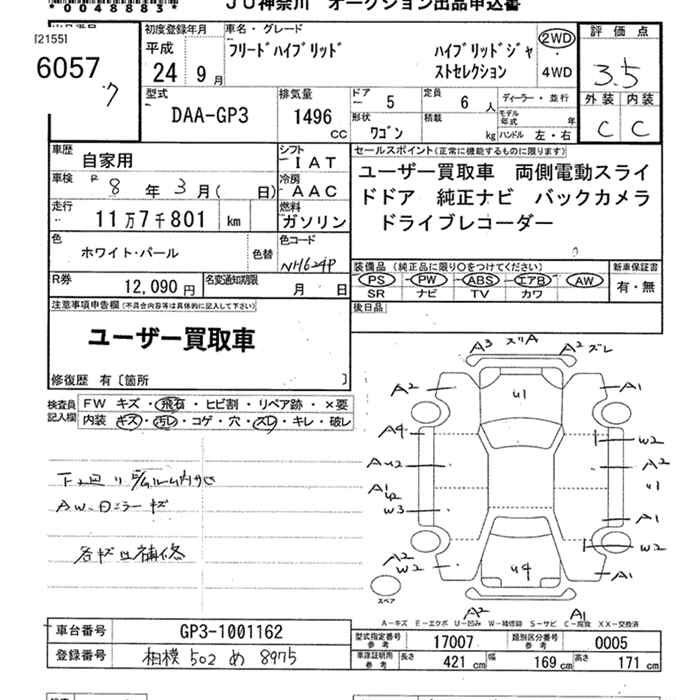 *0048883*
JU神奈川 オークション出品申込書
[2155]
6057
ク
初度登録年月
平成
24 9月
車名・グレード
フリードハイブリッド
ハイブリッドジャ
ストセレクション
2WD
4WD
評価点
3.5
外装 内装
C C
型式
DAA-GP3
排気量
1496
cc
ドア
5
定員
6 人
形状
ワゴン
積載
kg
ディーラー・並行
モデル年式 年
ハンドル 左・右
車歴
自家用
シフト
IAT
車検
R 8 年 3 月( 日)
冷房
AAC
走行
11万7千801 km
燃料
ガソリン
色
ホワイト・パール
色替
色コード
NH624P
R券
12,090円
名変通知期限
月 日
セールスポイント(正常に機能するものに限ります)
ユーザー買取車 両側電動スライ
ドドア 純正ナビ バックカメラ
ドライブレコーダー
装備品(純正品に限り○をつけてください)
PS PW ABS エアB AW
SR ナビ TV カワ
新車保証書
有・無
注意事項申告欄(不具合内容等は具体的に記入して下さい)
ユーザー買取車
修復歴 有〔箇所 〕
後日品
検査員
記入欄
FW キズ・飛石・ヒビ割・リペア跡・×要
内装 キズ・汚レ・コゲ・穴・スレ・キレ・破レ
AW、ミラーキズ
各キズ凹補修
A3 スリA A2 ズレ
A2 U1 A1
A4 W2
AU2 A2
A1 U2 U1
W3 A1
A2 W2
W2 U4 A1
スペア
A2 A1
A-キズ E-エクボ U-凹み W-補修跡 S-サビ C-腐食 XX-交換済
車台番号
GP3-1001162
登録番号
相模 502 め 8975
型式指定番号
参考
17007
類別区分番号
参考
0005
車庫証明用
参考
長さ 421 cm 幅 169 cm 高さ 171 cm